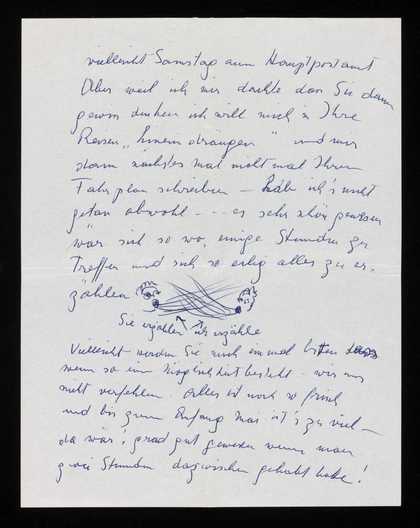 vielleicht Samstag am Hauptpostamt
Aber weil ich mir dachte dass Sie dann
gewiss denken ich will mich in Ihre
Reisen „hineindrängen" und mir
dann nächstes mal nicht mal Ihren
Fahrplan schreiben — hab ich's nicht
getan obwohl --- es sehr schön gewesen
wär sich so wo, einige Stunden zu
Treffen und sich so eilig alles zu er-
zählen
Sie erzählen ich erzähle
Vielleicht werden Sie mich einmal bitten dass
wenn so eine Möglichkeit besteht - wir uns
nicht verfehlen. Alles ist noch so frisch
und bis zum Anfang Mai ist's zu viel —
da wär's grad gut gewesen wenn man
zwei Stunden dazwischen gehabt hätte!